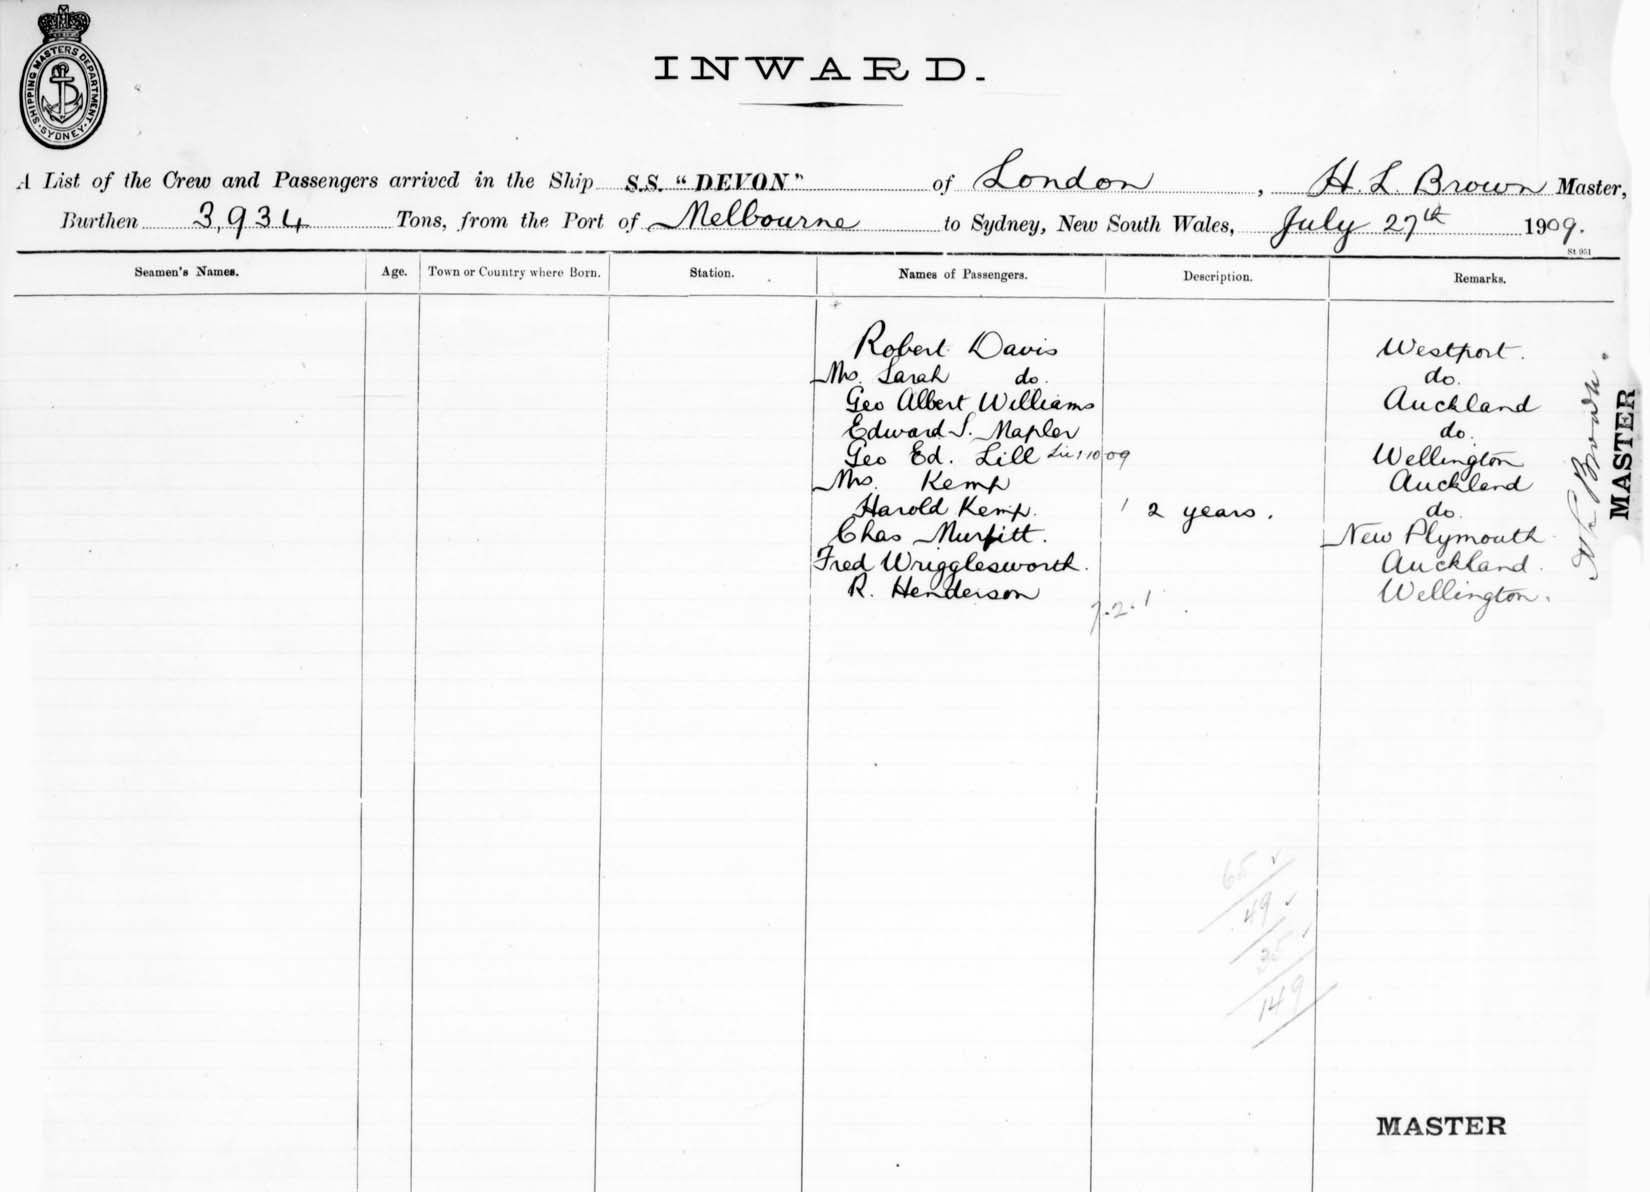 SHIPPING MASTERS DEPARTMENT
SYDNEY
INWARD.
A List of the Crew and Passengers arrived in the Ship S.S. "DEVON" of London, H. L. Brown Master,
Burthen 3,934 Tons, from the Port of Melbourne to Sydney, New South Wales, July 27th 1909.
St 951
Seamen's Names. Age. Town or Country where Born. Station. Names of Passengers. Description. Remarks.
Robert Davis Westport.
Mrs. Sarah do. do.
Geo Albert Williams Auckland
Edward S. Mapler do.
Geo Ed. Lill 09 Wellington
Mrs. Kemp Auckland
Harold Kemp. 2 years. do.
Chas Murfitt. New Plymouth
Fred Wrigglesworth. Auckland.
R. Henderson Wellington.
7.2.1
H L Brown.
MASTER
65
49
35
149
MASTER